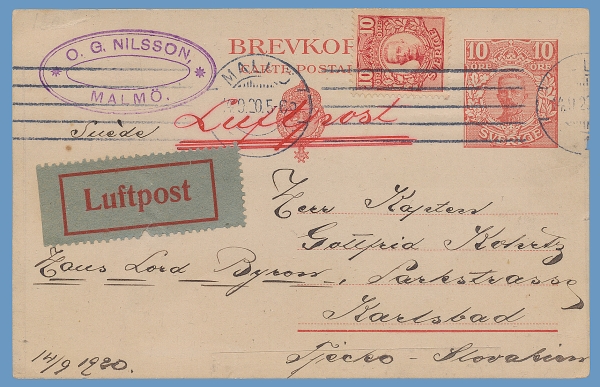 O. G. NILSSON,
MALMÖ.
BREVKOR
CARTE POSTAL
10
10
SVERIGE
10 10
ÖRE ÖRE
SVERIGE
MALMÖ
Suède
Luftpost
Luftpost
Herr Kapten
Gottfrid Kohrtz
Haus Lord Byron, Parkstrasse
Karlsbad
Tjecko-Slovakien
14/9 1920.